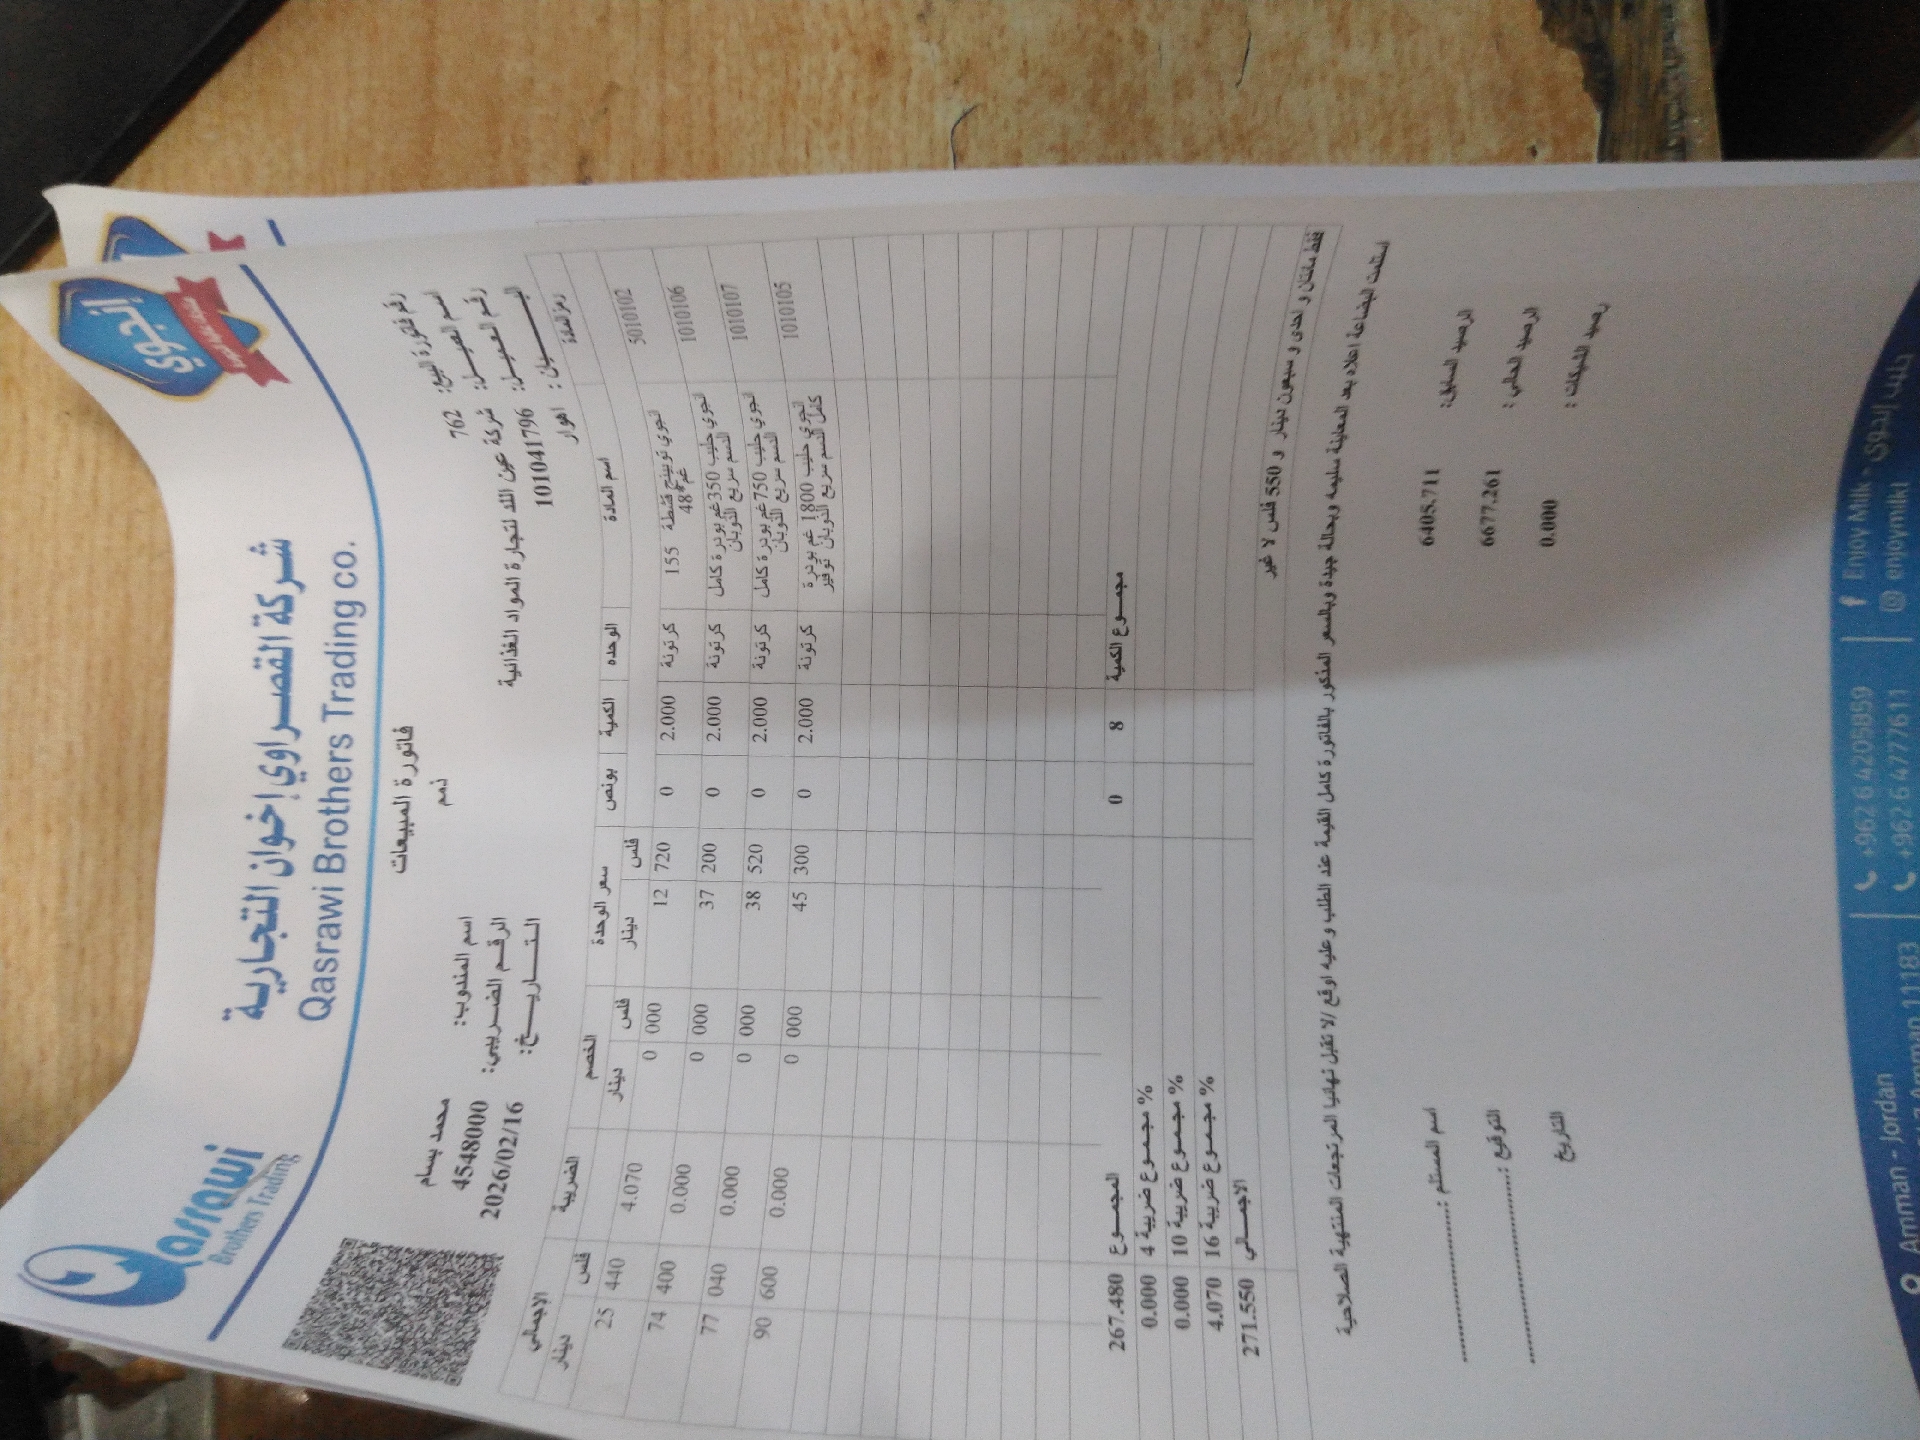 شركة القصراوي إخوان التجارية
Qasrawi Brothers Trading co.
Qasrawi
Brothers Trading
إنجوي
فاتورة المبيعات
ذمم
رقم فاتورة البيع: 762
اسم العميل: شركة عين الله لتجارة المواد الغذائية
رقم العميل: 101041796
البيان: اهوار
اسم المندوب: محمد بسام
الرقم الضريبي: 4548000
التاريخ: 2026/02/16
رمز المادة اسم المادة الوحده الكمية بونص سعر الوحدة الخصم الضريبة الإجمالي
دينار فلس دينار فلس دينار فلس
5010102 انجوي توبينج قشطة 155 غم*48 كرتونة 2.000 0 12 720 0 000 4.070 25 440
1010106 انجوي حليب 350 غم بودرة كامل الدسم سريع الذوبان كرتونة 2.000 0 37 200 0 000 0.000 74 400
1010107 انجوي حليب 750 غم بودرة كامل الدسم سريع الذوبان كرتونة 2.000 0 38 520 0 000 0.000 77 040
1010105 انجوي حليب 1800 غم بودرة كامل الدسم سريع الذوبان توفير كرتونة 2.000 0 45 300 0 000 0.000 90 600
مجموع الكمية 8 0 المجموع 267.480
% مجموع ضريبة 4 0.000
% مجموع ضريبة 10 0.000
% مجموع ضريبة 16 4.070
الاجمالي 271.550
فقط مائتان و احدى و سبعون دينار و 550 فلس لا غير
استلمت البضاعة اعلاه بعد المعاينة سليمه وبحالة جيدة وبالسعر المذكور بالفاتورة كامل القيمة عند الطلب وعليه اوقع /لا تقبل نهائيا المرتجعات المنتهية الصلاحية
الرصيد السابق: 6405.711
الرصيد الحالي : 6677.261
رصيد الشيكات : 0.000
اسم المستلم :
التوقيع :
التاريخ
Amman - Jordan
Amman 11183
+962 6 4205859
+962 6 4777611
Enjoy Milk - حليب إنجوي
enjoymilk1